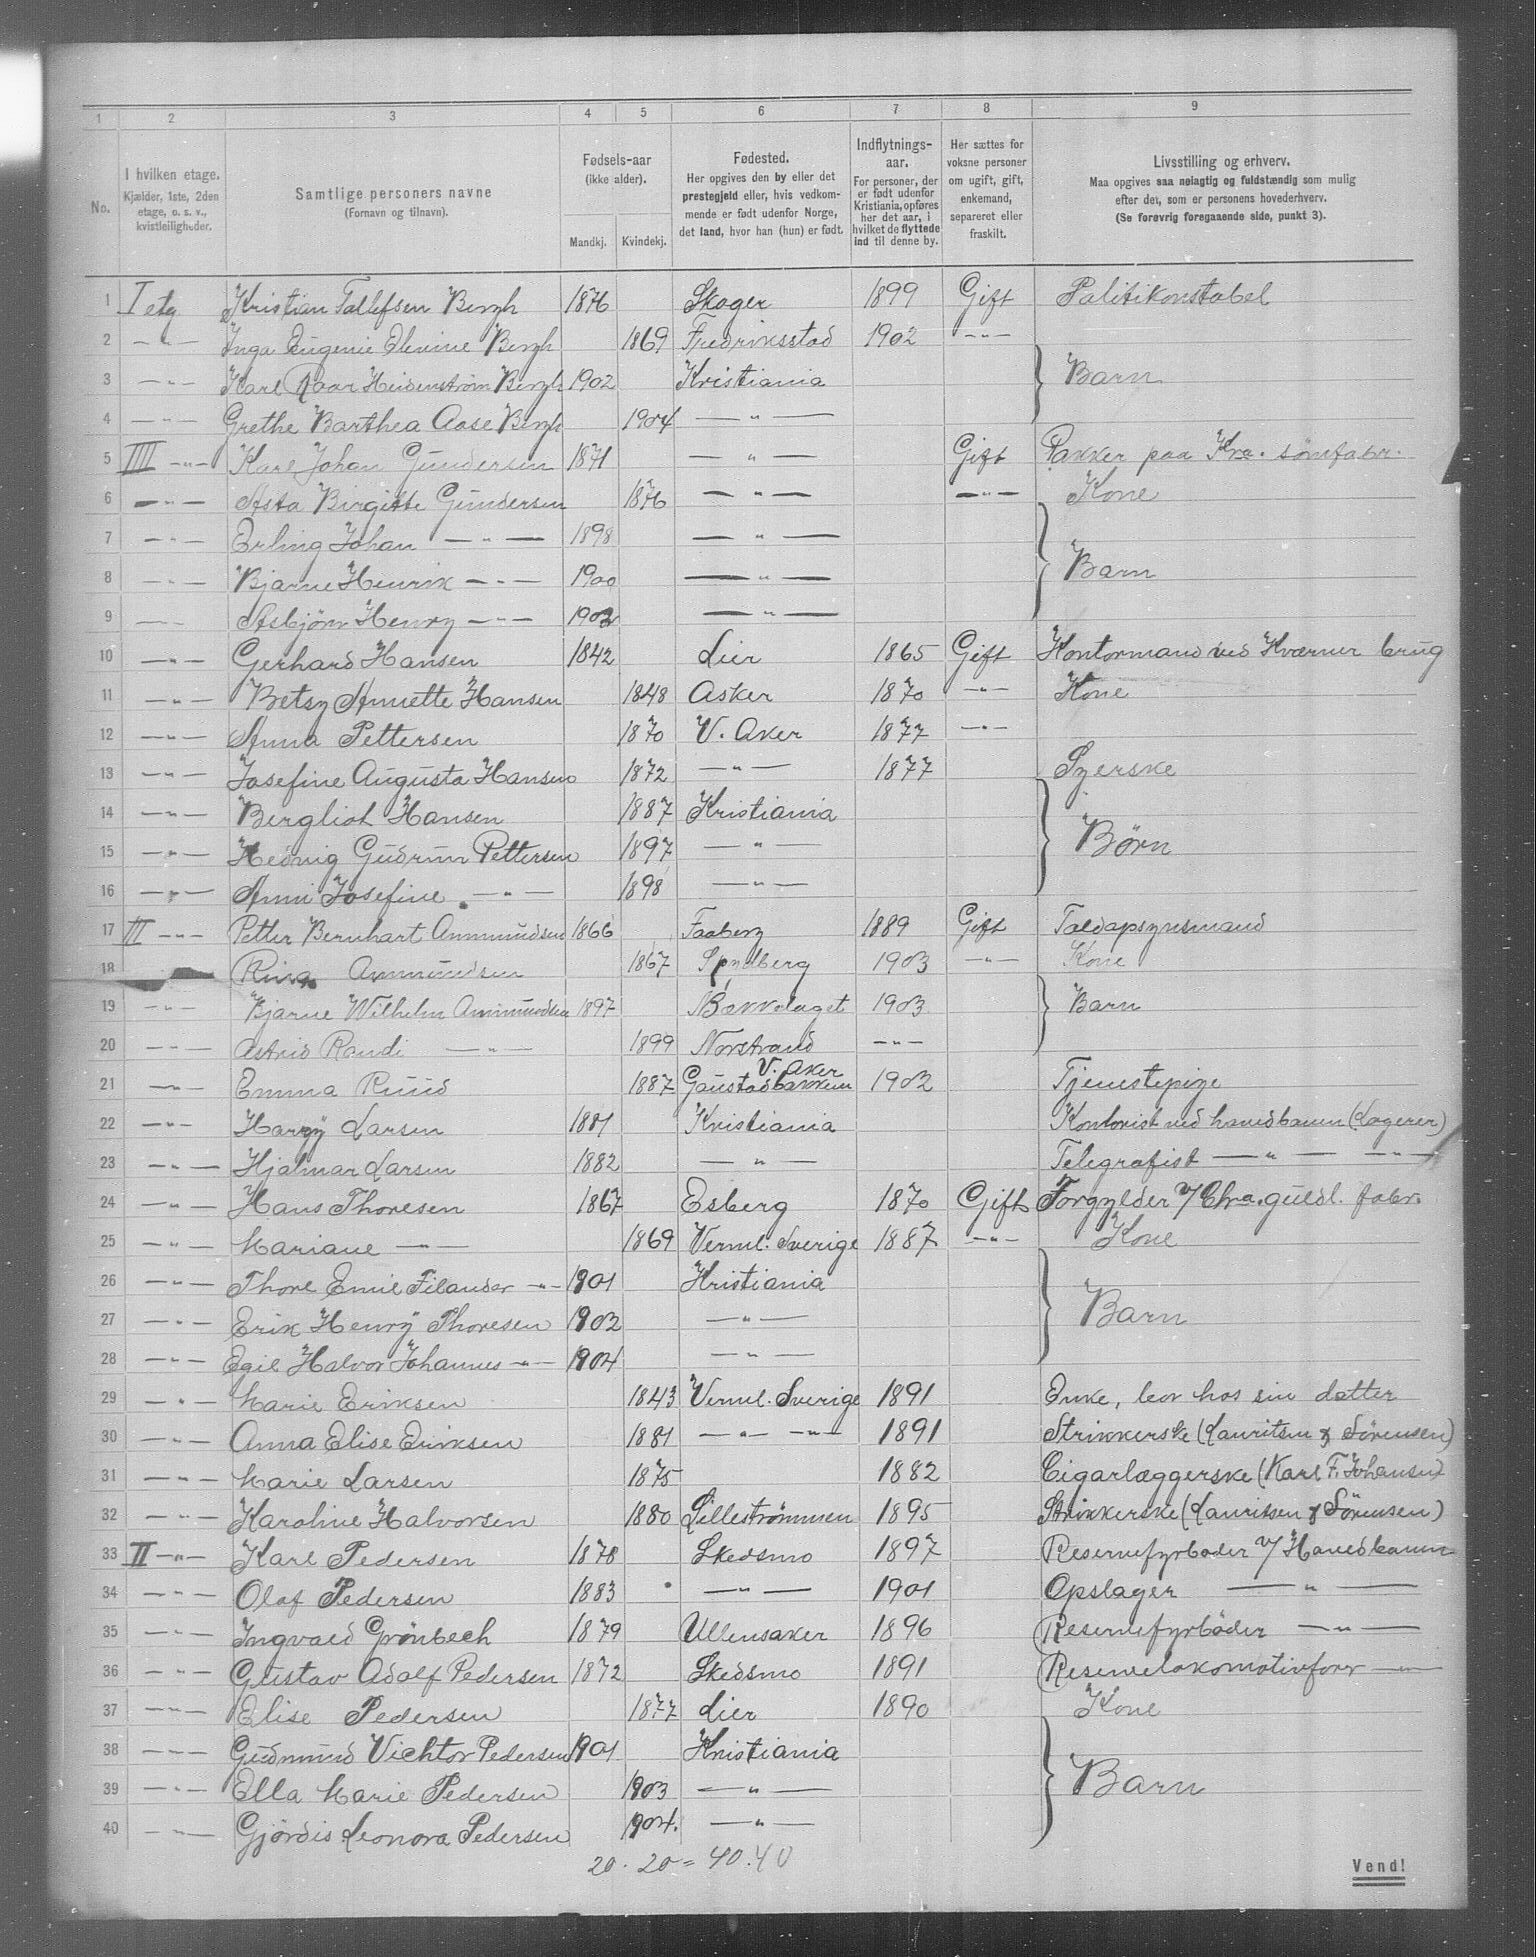 1 2 3 4 5 6 7 8 9
No. I hvilken etage. Kjælder, 1ste, 2den etage, o. s. v., kvistleiligheder. Samtlige personers navne (Fornavn og tilnavn). Fødsels-aar (ikke alder). Mandkj. Kvindekj. Fødested. Her opgives den by eller det prestegjeld eller, hvis vedkommende er født udenfor Norge, det land, hvor han (hun) er født. Indflytnings-aar. For personer, der er født udenfor Kristiania, opføres her det aar, i hvilket de flyttede ind til denne by. Her sættes for voksne personer om ugift, gift, enkemand, separeret eller fraskilt. Livsstilling og erhverv. Maa opgives saa nøiagtig og fuldstændig som mulig efter det, som er personens hovederhverv. (Se forøvrig foregaaende side, punkt 3).
1 I etg Kristian Tallefsen Bergh 1876 Skoger 1899 Gift Politikonstabel
2 — " — Inga Eugenie Olevine Bergh 1869 Fredriksstad 1902 — " —
3 — " — Karl Roar Heidenstrøm Bergh 1902 Kristiania } Barn
4 — " — Grethe Barthea Aase Bergh 1904 — " —
5 IIII — " — Karl Johan Gundersen 1871 — " — Gift Pakker paa Kra. sömfabr.
6 — " — Asta Birgitte Gundersen 1876 — " — — " — Kone
7 — " — Erling Johan — " — 1898 — " —
8 — " — Bjarne Henrik — " — 1900 — " — } Barn
9 — " — Asbjörn Henry — " — 1902 — " —
10 — " — Gerhard Hansen 1842 Lier 1865 Gift Kontormand ved Kværner brug
11 — " — Betsy Annette Hansen 1848 Asker 1870 — " — Kone
12 — " — Anna Pettersen 1870 V. Aker 1877 — " —
13 — " — Josefine Augusta Hansen 1872 — " — 1877 Syerske
14 — " — Bergliot Hansen 1887 Kristiania
15 — " — Hedvig Gudrun Pettersen 1897 — " — } Børn
16 — " — Anni Josefine — " — 1898 — " —
17 III — " — Petter Bernhart Ammundsen 1866 Faaberg 1889 Gift Toldopsynsmand
18 Rina Ammundsen 1867 Spydberg 1903 — " — Kone
19 — " — Bjarne Wilhelm Ammundsen 1897 Bækkelaget 1903 } Barn
20 — " — Astrid Randi — " — 1899 Norstrand — " —
21 — " — Emma Ruud 1887 Gaustadbakken V. Aker 1902 Tjenestepige
22 — " — Harry Larsen 1881 Kristiania Kontorist ved hovedbanen (Lagerer)
23 — " — Hjalmar Larsen 1882 — " — Telegrafist — " — — " —
24 — " — Hans Thoresen 1867 Esberg 1870 Gift Forgylder v/ Chra. guldl. fabr.
25 — " — Mariane — " — 1869 Verml. Sverige 1887 — " — Kone
26 — " — Thore Emil Filander — " — 1901 Kristiania
27 — " — Erik Henry Thoresen 1902 — " — } Barn
28 — " — Egil Halvor Johannes — " — 1904 — " —
29 — " — Marie Eriksen 1843 Verml. Sverige 1891 Enke, bor hos sin datter
30 — " — Anna Elise Eriksen 1881 — " — — " — 1891 Strikkerske (Lauritsen & Sörensen)
31 — " — Marie Larsen 1875 1882 Cigarlæggerske (Karl F. Johansen)
32 — " — Karoline Halvorsen 1880 Lilleströmmen 1895 Strikkerske (Lauritsen & Sörensen)
33 II — " — Karl Pedersen 1878 Skedsmo 1897 Reservefyrbøder v/ Hovedbanen
34 — " — Olaf Pedersen 1883 — " — 1901 Opslager — " —
35 — " — Ingvald Grönbech 1879 Ullensaker 1896 Reservefyrböder — " —
36 — " — Gustav Adolf Pedersen 1872 Skedsmo 1891 Reservelokomotivförer — " —
37 — " — Elise Pedersen 1877 Lier 1890 Kone
38 — " — Gudmund Vichtor Pedersen 1901 Kristiania
39 — " — Ella Marie Pedersen 1903 — " — } Barn
40 — " — Gjördis Leonora Pedersen 1904. — " —
20 . 20 = 40 . 40
Vend!